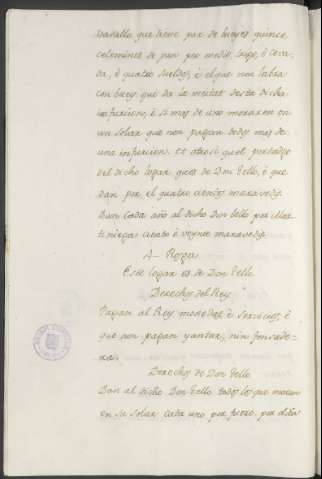 vasallo que tiene par de bueyes quince
celemines de pan por medio, trigo, è ceva-
da, è quatro sueldos, è el que non labra
con buey, que da la meitat desta dicha
infurcion, è si mas de uno moraren en
un solar que non pagan todos mas de
una infurcion. et otrosi quel portadgo
del dicho logar que es de Don Tello, è que
dan por el quatro cientos maravedis.
Dan cada año al dicho Don Tello por Mar-
tiniega ciento è veynte maravedis.
Este logar es de Don Tello
Derechos del Rey
Pagan al Rey monedas è servicios, è
que non pagan yantar, nin fonsade-
ra.
Derechos de Don Tello
Dan al dicho Don Tello todos los que moran
en su solar, cada uno por fuero, por dicha